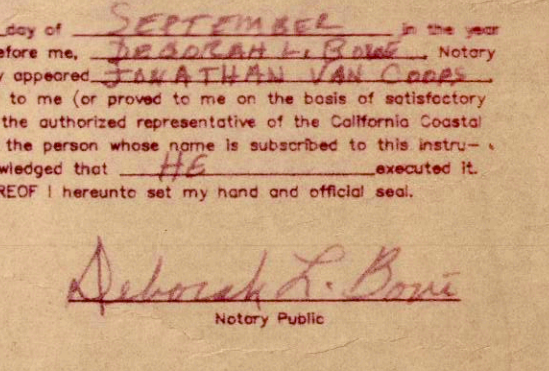 day of SEPTEMBER in the year
efore me, DEBORAH L. BOVE, Notary
y appeared JONATHAN VAN COOPS,
to me (or proved to me on the basis of satisfactory
the authorized representative of the California Coastal
the person whose name is subscribed to this instru-
wledged that HE executed it.
REOF I hereunto set my hand and official seal.
Deborah L. Bove
Notary Public